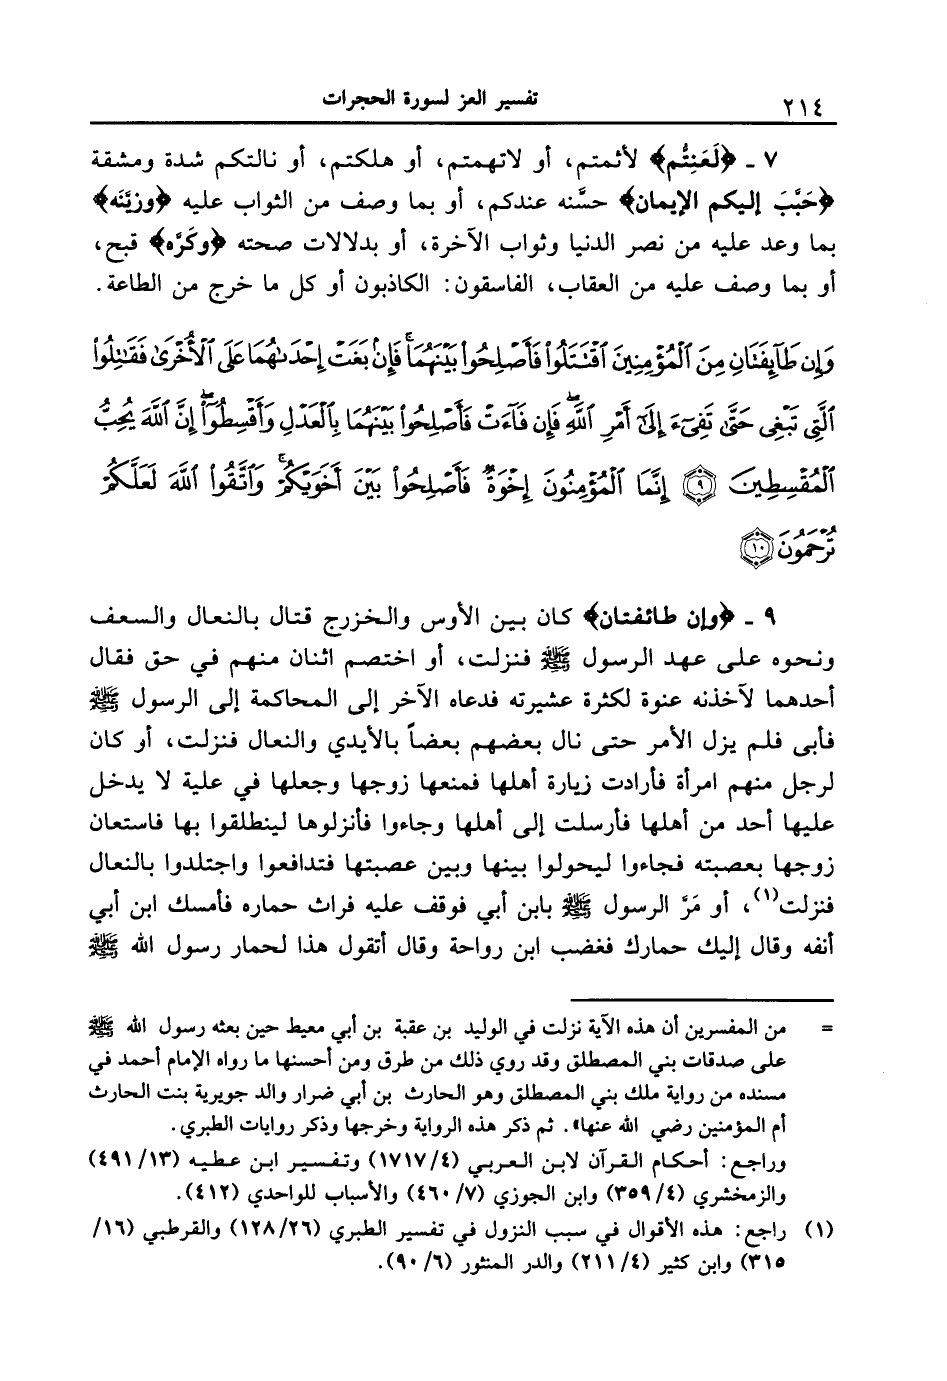 ٢١٤
تفسير العز لسورة الحجرات
٧ ـ ﴿لَعَنِتُّم﴾ لأثمتم، أو لاتهمتم، أو هلكتم، أو نالتكم شدة ومشقة
﴿حَبَّبَ إليكم الإيمان﴾ حسَّنه عندكم، أو بما وصف من الثواب عليه ﴿وزيَّنَه﴾
بما وعد عليه من نصر الدنيا وثواب الآخرة، أو بدلالات صحته ﴿وكَرَّه﴾ قبح،
أو بما وصف عليه من العقاب، الفاسقون: الكاذبون أو كل ما خرج من الطاعة.
وَإِن طَآئِفَتَانِ مِنَ ٱلْمُؤْمِنِينَ ٱقْتَتَلُوا۟ فَأَصْلِحُوا۟ بَيْنَهُمَا ۖ فَإِنۢ بَغَتْ إِحْدَىٰهُمَا عَلَى ٱلْأُخْرَىٰ فَقَٰتِلُوا۟
ٱلَّتِى تَبْغِى حَتَّىٰ تَفِىٓءَ إِلَىٰٓ أَمْرِ ٱللَّهِ ۚ فَإِن فَآءَتْ فَأَصْلِحُوا۟ بَيْنَهُمَا بِٱلْعَدْلِ وَأَقْسِطُوٓا۟ ۖ إِنَّ ٱللَّهَ يُحِبُّ
ٱلْمُقْسِطِينَ ٩ إِنَّمَا ٱلْمُؤْمِنُونَ إِخْوَةٌ فَأَصْلِحُوا۟ بَيْنَ أَخَوَيْكُمْ ۚ وَٱتَّقُوا۟ ٱللَّهَ لَعَلَّكُمْ
تُرْحَمُونَ ١٠
٩ ـ ﴿وإن طائفتان﴾ كان بين الأوس والخزرج قتال بالنعال والسعف
ونحوه على عهد الرسول ﷺ فنزلت، أو اختصم اثنان منهم في حق فقال
أحدهما لآخذنه عنوة لكثرة عشيرته فدعاه الآخر إلى المحاكمة إلى الرسول ﷺ
فأبى فلم يزل الأمر حتى نال بعضهم بعضاً بالأيدي والنعال فنزلت، أو كان
لرجل منهم امرأة فأرادت زيارة أهلها فمنعها زوجها وجعلها في علية لا يدخل
عليها أحد من أهلها فأرسلت إلى أهلها وجاءوا فأنزلوها لينطلقوا بها فاستعان
زوجها بعصبته فجاءوا ليحولوا بينها وبين عصبتها فتدافعوا واجتلدوا بالنعال
فنزلت(١)، أو مَرَّ الرسول ﷺ بابن أبي فوقف عليه فراث حماره فأمسك ابن أبي
أنفه وقال إليك حمارك فغضب ابن رواحة وقال أتقول هذا لحمار رسول الله ﷺ
= من المفسرين أن هذه الآية نزلت في الوليد بن عقبة بن أبي معيط حين بعثه رسول الله ﷺ
على صدقات بني المصطلق وقد روي ذلك من طرق ومن أحسنها ما رواه الإمام أحمد في
مسنده من رواية ملك بني المصطلق وهو الحارث بن أبي ضرار والد جويرية بنت الحارث
أم المؤمنين رضي الله عنها». ثم ذكر هذه الرواية وخرجها وذكر روايات الطبري.
وراجع: أحكام القرآن لابن العربي (١٧١٧/٤) وتفسير ابن عطيه (٤٩١/١٣)
والزمخشري (٣٥٩/٤) وابن الجوزي (٤٦٠/٧) والأسباب للواحدي (٤١٢).
(١) راجع: هذه الأقوال في سبب النزول في تفسير الطبري (١٢٨/٢٦) والقرطبي (١٦/
٣١٥) وابن كثير (٢١١/٤) والدر المنثور (٩٠/٦).